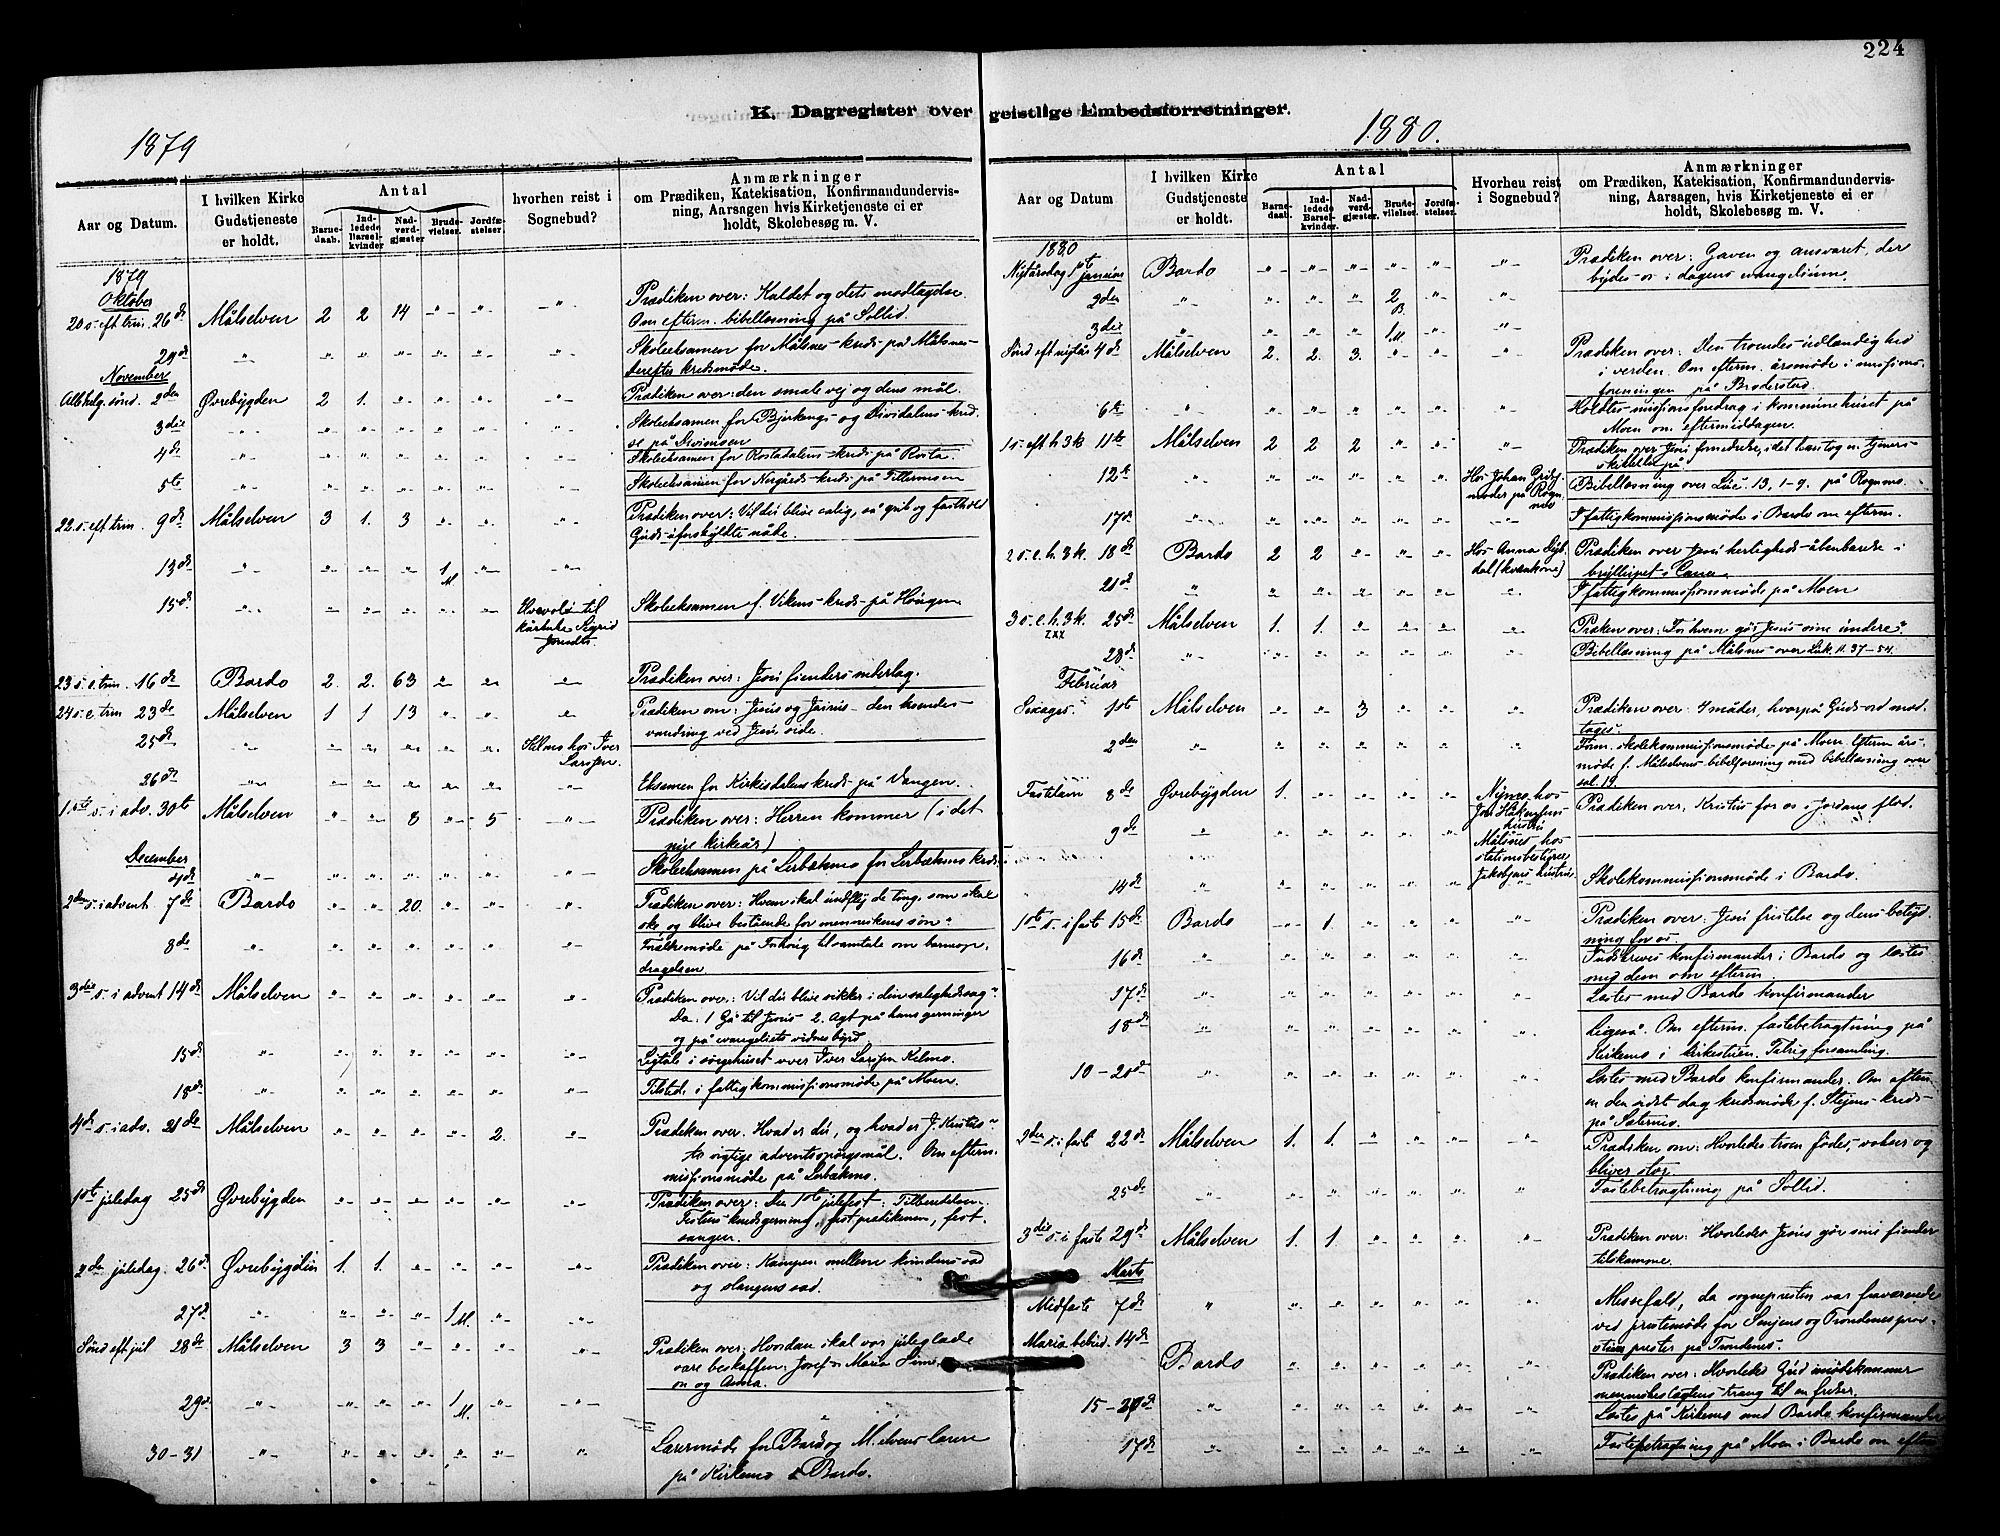 224
K. Dagregister over geistlige Embedsforretninger.
1879
Aar og Datum.
I hvilken Kirke
Gudstjeneste
er holdt.
Antal
Barne-
daab.
Ind-
ledede
Barsel-
kvinder
Nad-
verd-
gjæster
Brude-
vielser.
Jordfæ-
stelser.
hvorhen reist i
Sognebud?
Anmærkninger
om Prædiken, Katekisation, Konfirmandundervis-
ning, Aarsagen hvis Kirketjeneste ei er
holdt, Skolebesøg m. V.
1879
Oktober
20 s. eft trin. 26de Målselven 2 2 14 " " " Prædiken over: Kaldet og dets modtagelse.
Om efterm. bibellæsning på Sollid.
29de " " " " " " " Skoleeksamen for Målsnes-kreds på Målsnes-
derefter kredsmøde.
November
Allehelg. sønd. 2den Øvrebygden 2 1. " " " " Prædiken over: den smale vej og dens mål.
3die " " " " " " " Skoleeksamen for Bjerkengs- og Dividalens-kred-
se på
4de " " " " " " " Skoleeksamen for Rostadalens-kreds på Rosta.
5te " " " " " " " Skoleeksamen for Norgårds-kreds på
22 s. eft trin. 9de Målselven 3 1. 3 " " " Prædiken over: Vil du blive salig, så grib og fasthold
Guds uforskyldte nåde.
13de " " " " 1 M " "
15de " " " " " " til
Sigrid
Skoleeksamen f. Vikens-kreds på Haugen.
23 s. e. trin. 16de Bardo 2. 2. 63 " " " Prædiken over: Jesu fienders nederlag.
24 s. e. trin 23de Målselven 1 1 13 " " " Prædiken om: Jesus og Jairus - den
vandring ved Jesu side.
25de " " " " " " hos Iver
Larssen.
26de " " " " " " Eksamen for Kirkesdalens kreds på Vangen.
1ste s. i adv. 30te Målselven " " 8 " 5 " Prædiken over: Herren kommer (i det
nye kirkeår)
December
4de " " " " " " " Skoleeksamen på Lerbækmo for Lerbækmo kreds.
2den s. i advent 7de Bardo " " 20. " " " Prædiken over: Hvem skal undfly de ting, som skal
ske og blive bestående for menneskens søn"
8de " " " " " " " møde på til samtale om barneop-
dragelsen
3die s. i advent 14de Målselven " " " " " " Prædiken over: Vil du blive sikker i din salighedssag"
Da: 1 Gå til Jesus 2. Agt på hans gerninger
og på evangeliets vidnesbyrd
15de " " " " " " " Ligtale i sørgehuset over Iver Larssen Kelmo.
18de " " " " " " " Tilstede i fattigkommissionsmøde på Moen.
4de s. i adv. 21de Målselven " " " " 2. " Prædiken over. Hvad er du, og hvad er J. Kristus"
to vigtige adventsspørgsmål. Om efterm.
missionsmøde på Lerbækmo.
1ste juledag 25de Øvrebygden " " " " " " Prædiken over: Den 1ste julefest: Tilberedelsen.
Festens kundgøring, festprædikenen, fest-
sangen.
2den juledag. 26de Øvrebygden 1. 1. " " " " Prædiken over: Kampen mellem kvindens sæd
og slangens sæd.
27de " " " " 1 M. " "
Sønd eft jul 28de Målselven 3 3 " " " " Prædiken over: Hvordan skal vor juleglæde
være beskaffen: Josef - Maria Sime-
on og Anna.
29de " " " " 1 M. " "
30-31 " " " " " " " Lærermøde for Bardo og M.elvens lærere
på Kirkemo i Bardo.
1880.
Aar og Datum
I hvilken Kirke
Gudstjeneste
er holdt.
Antal
Barne-
daab.
Ind-
ledede
Barsel-
kvinder.
Nad-
verd-
gjæster.
Brude-
vielser.
Jordfæ-
stelser.
Hvorhen reist
i Sognebud?
Anmærkninger
om Prædiken, Katekisation, Konfirmandundervis-
ning, Aarsagen, hvis Kirketjeneste ei er
holdt, Skolebesøg m. V.
1880
Nytårsdag 1ste januar Bardo " " " " " " Prædiken over: Gaven og ansvaret, der
bydes os i dagens evangelium.
2den " " " " 2 B. " "
3die " " " " 1 M. " "
Sønd eft nytår 4de Målselven 2. 2. 3. " " " Prædiken over: Den troendes udlændighed
i verden. Om efterm. årsmøde i missions-
foreningen på Broderstad.
6te " " " " " " " Holdtes missionsforedrag i kommunehuset på
Moen om eftermiddagen.
1 s. eft h. 3 k. 11te Målselven 2 2 2 " " " Prædiken over Jesu fornedrelse, idet han tog en tjeners
skikkelse på
12te " " " " " " Hos Johan
på
Bibellæsning over Luc. 13, 1-9. på Rognmo.
17de " " " " " " " I fattigkommissionsmøde i Bardo om efterm.
2 s. e. h. 3 k. 18de Bardo 2 2 " " " Hos Anna
dal (kvænkone)
Prædiken over Jesu herligheds-åbenbarelse i
bryllupet i Cana.
21de " " " " " " " I fattigkommissionsmøde på Moen
3 s. e. h. 3 k. 25de Målselven 1. 1. " " " " Præken over: For hvem gør Jesus sine undere?"
28de " " " " " " " Bibellæsning på Målsnes over Luk. 11. 37-54.
Februar
Sexages. 1ste Målselven " " 3 " " " Prædiken over: 4 måder, hvorpå Guds ord mod-
tages.
2den " " " " " " " Form. skolekommissionsmøde på Moen. Efterm års-
møde f. Målselvens bibelforening med bibellæsning over
sal. 19.
Fastelavn 8de Øvrebygden 1. " " " " Nymo hos
hustru
Prædiken over: Kristus for os i Jordans flod.
9de " " " " " " Målsnes, hos
stationsbestyrer
Jakobsens hustru
14de " " " " " " " Skolekommissionsmøde i Bardo.
1ste s. i faste 15de Bardo " 1. " " " " Prædiken over: Jesu fristelse og dens betyd-
ning for os.
16de " " " " " " " Indskreves konfirmander i Bardo og læstes
med dem om efterm.
17de " " " " " " " Læstes med Bardo konfirmander
18de " " " " " " " Ligeså. Om efterm. fastebetragtning på
Kirkemo i kirkestuen. Talrig forsamling.
10-20de " " " " " " " Læstes med Bardo konfirmander. Om efterm.
en den sidst dag kredsmøde f. kreds-
på Sætermo.
2den s. i fast 22de Målselven 1. 1. " " " " Prædiken om: Hvorledes troen fødes, vokser og
bliver stor
25de " " " " " " " Fastebetragtning på Sollid.
3die s. i faste 29de Målselven 1. 1. " " " " Prædiken over: Hvorledes Jesus gør sine fiender
tilskamme.
Marts
Midfaste 7de " " " " " " " Messefald, da sognepresten var fraværende
ved prestemøde for Senjens og Trondenes prov-
stiers prester på Trondenes.
Mariæ bebud. 14de Bardo " " " " " " Prædiken over: Hvorledes Gud imødekommer
menneskeslægtens trang til en frelser.
15-20de " " " " " " " Læstes på Kirkemo med Bardo konfirmander
17de " " " " " " " Fastebetragtning på Moen i Bardo om efterm